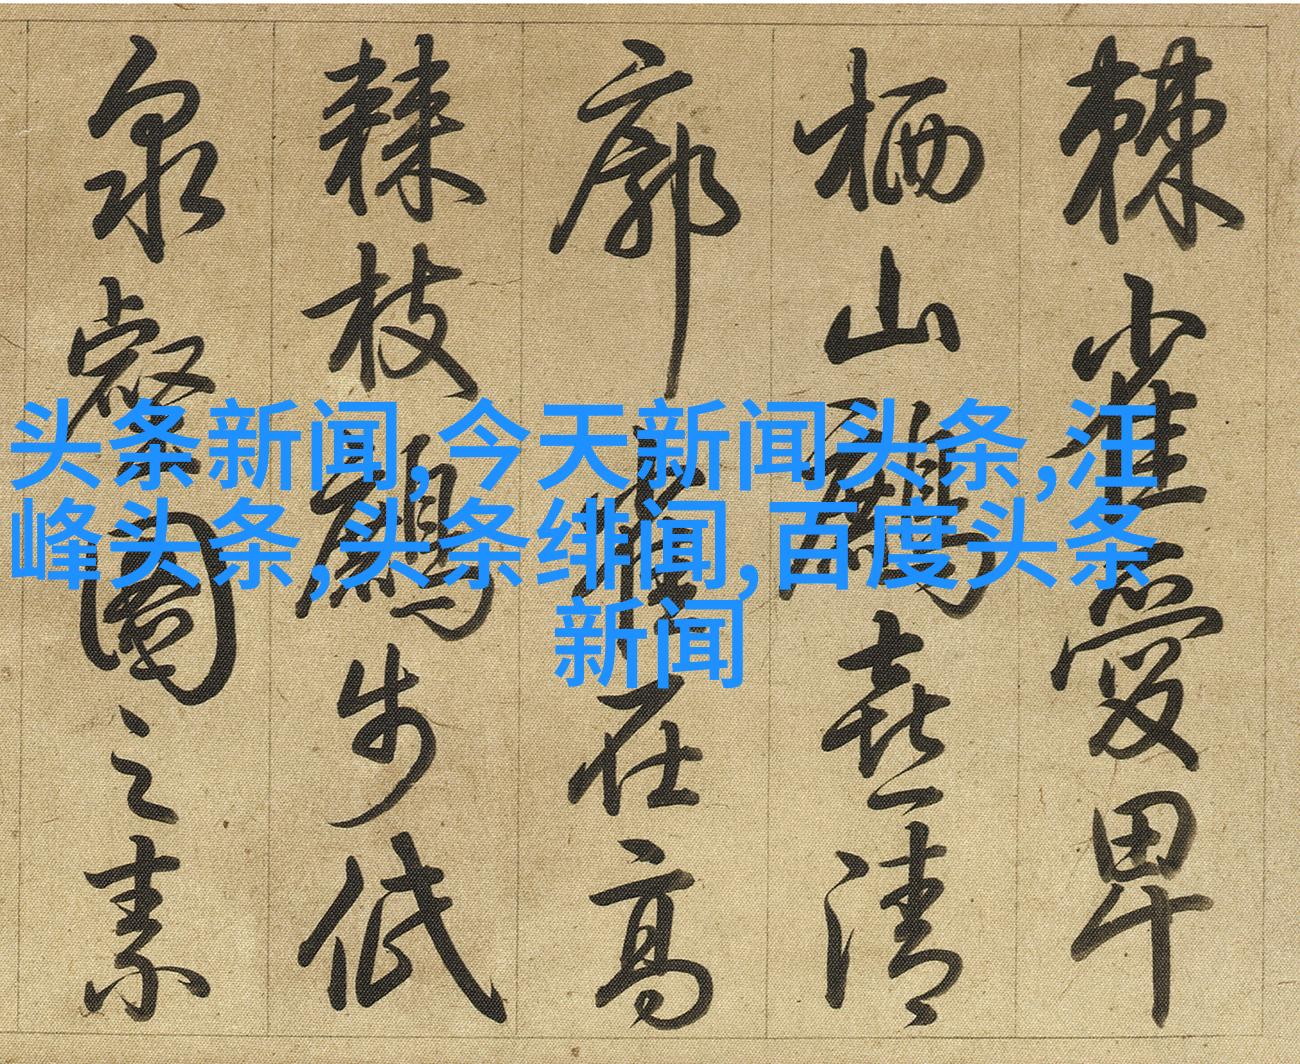 棘雀爱卑
栖山鹧喜清
廓
在高
棘枝鹧步低
泉壑園之素
头条新闻,今天新闻头条,汪
峰头条,头条绯闻,百度头条
新闻